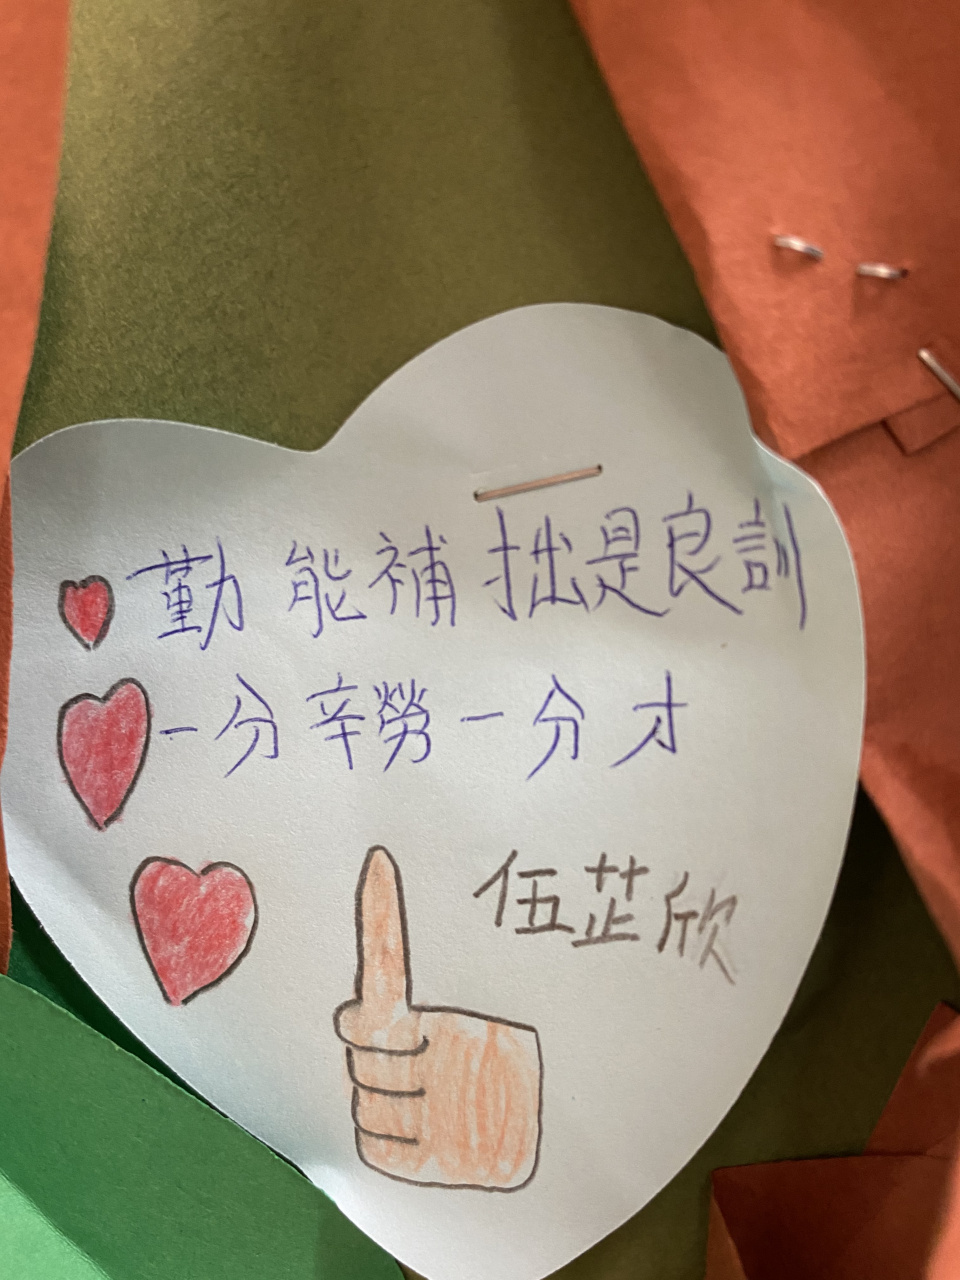 勤能補拙是良訓
一分辛勞一分才
伍芷欣